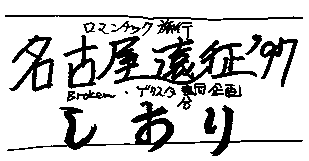 ロマンチック旅行
名古屋遠征'97
Broken・ゲリスタ共同企画
しおり